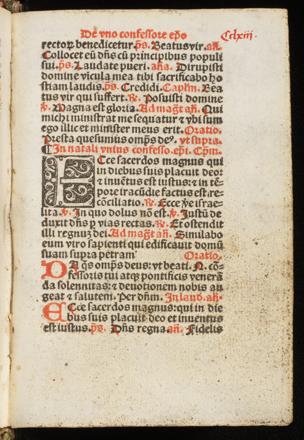 De vno confessore epō Cclxiij.
rectoꝝ benedicetur. p̄s. Beatus vir. añ.
Collocet eū dn̄s cū principibus populi
sui. p̄s. Laudate pueri. añ. Dirupisti
domine vicula mea tibi sacrificabo ho
stiam laudis. p̄s. Credidi. Capl'm. Bea
tus vir qui suffert. ℞. Posuisti domine
℣. Magna est gloria. Ad magt̄ añ. Qui
michi ministrat me sequatur ⁊ vbi sum
ego illic et minister meus erit. Oratio.
Presta quesumus omp̄s deꝰ. vt supra.
In natali vnius confesso. epi. Cpm̄.
Ecce sacerdos magnus qui
in diebus suis placuit deo:
⁊ inuētus est iustus: ⁊ in tē
pote iracūdie factus est re
cōciliatio. ℞. Ecce ꝟe israe
lita. ℣. In quo dolus nō est. ℣. Justū de
duxit dn̄s ꝑ vias rectas. ℟. Et ostendit
illi regnū dei. Ad magt̄ añ. Similabo
eum viro sapienti qui edificauit domū
suam supra petram Oratio.
Da q̄s omp̄s deus: vt beati. N. cō
fessoris tui atqꝫ pontificis venerā
da solennitas: ⁊ deuotionem nobis au
geat ⁊ salutem. Per dn̄m. In laud. añ.
Ecce sacerdos magnus: qui in die
bus suis placuit deo et inuentus
est iustus. p̄s. Dn̄s regna. añ. Fidelis